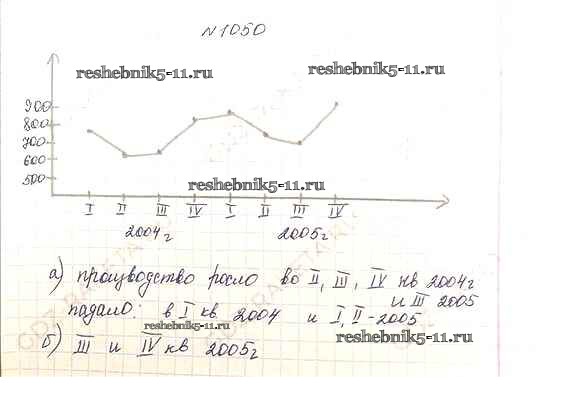 N 1050
reshebnik5-11.ru
reshebnik5-11.ru
900
800
700
600
500
reshebnik5-11.ru
I II III IV I II III IV
2004г 2005г
а) производство росло во II, III, IV кв 2004г
и III 2005
падало: в I кв 2004 и I, II - 2005
reshebnik5-11.ru
б) III и IV кв 2005г
reshebnik5-11.ru